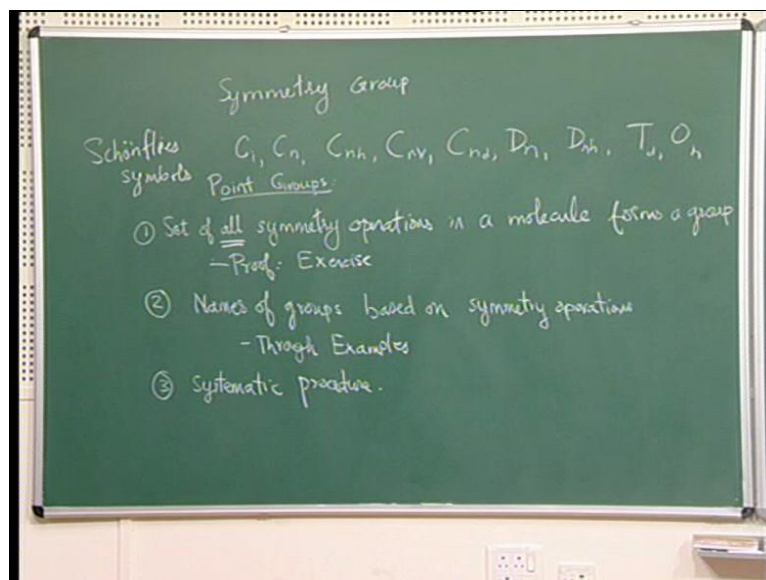 Symmetry Group
Schönflies symbols C_i, C_n, C_nh, C_nv, C_nd, D_n, D_nh, T_d, O_h
Point Groups:
① Set of all symmetry operations in a molecule forms a group
- Proof: Exercise
② Names of groups based on symmetry operations
- Through Examples
③ Systematic procedure.